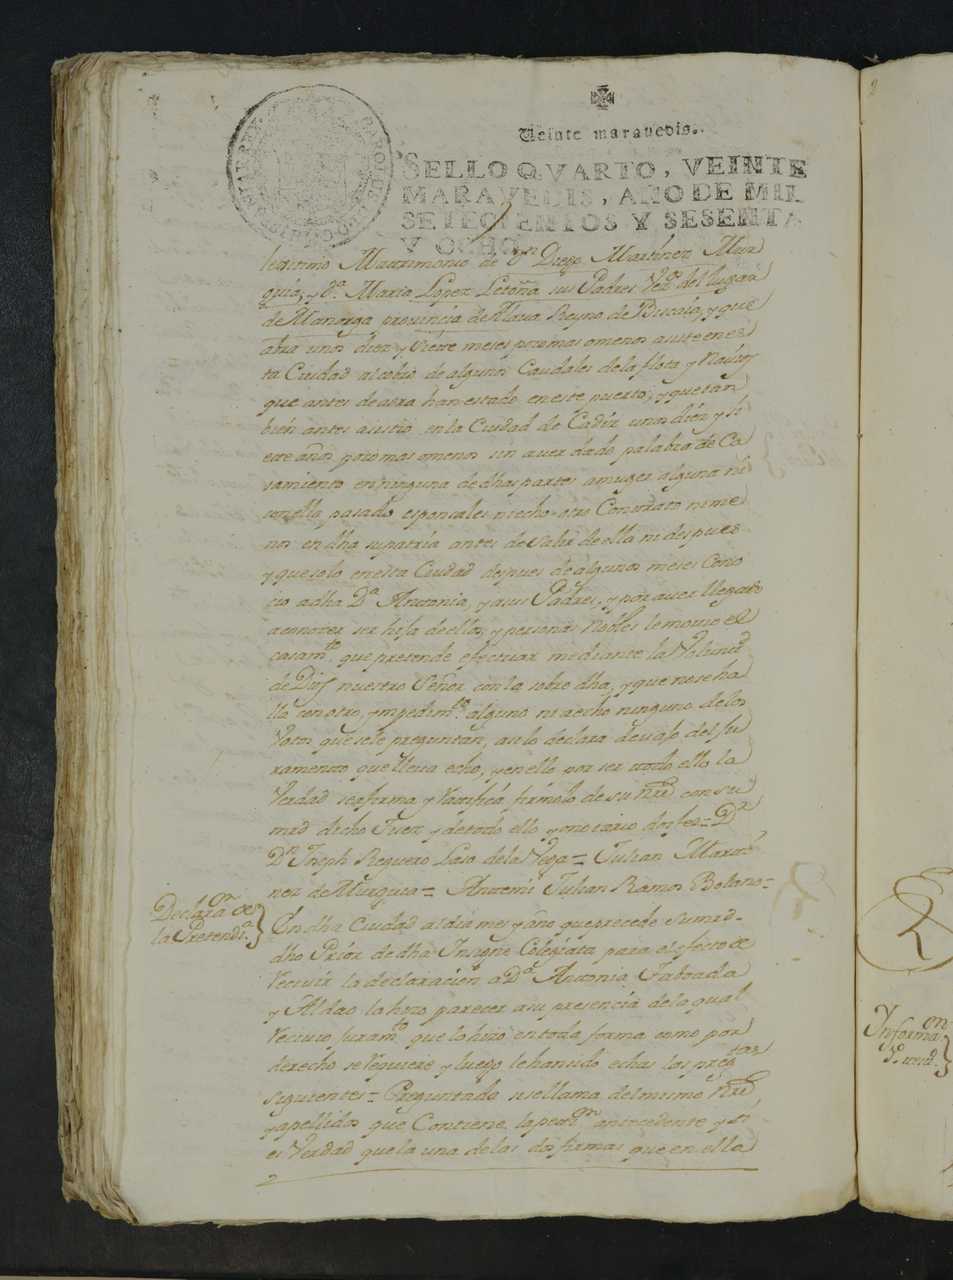 Veinte maravedis.
SELLO QVARTO, VEINTE
MARAVEDIS, AÑO DE MIL
SETECIENTOS Y SESENTA
Y OCHO.
lexitimo Matrimonio de Dn Diego Martinez Mur
guia, y Da. Maria Lopez Letona sus Padres Vezos del lugar
de Manurga provincia de Alava Reyno de Biscaia, y que
abra unos diez y siete meses poco mas o menos asiste en es
ta Ciudad al cobro de algunos Caudales de la flota y Navios
que antes de aora han estado en este puerto, y que tam
bien antes asistio en la Ciudad de Cadiz unos diez y si
ete años poco mas o menos sin aver dado palabra de Ca
samiento en ninguna de dhas partes a muger alguna ni
con ella pasado esponsales ni echo otro Contrato ni me
nos en dha su patria antes de salir de ella ni despues
y que solo en esta Ciudad despues de algunos meses Cono
cio a dha Da Antonia, y a sus Padres, y por aver llegado
a conozer ser hija de ellos, y personas Nobles le movio el
casamto. que pretende efectuar mediante la Voluntd
de Dios nuestro Señor con la sobre dha, y que no se ha
lla con otro ympedimto. alguno ni a echo ninguno de los
Votos que se le preguntan, asi lo declara devajo del ju
ramento que lleva echo, y en ello por ser todo ello la
Verdad se afirma y Ratifica firmolo de su Nre con su
mrd dicho Juez y de todo ello yo notario doi fee = Dr
Dn Joseph Reguero Laso de la Vega = Julian Marti
nez de Murguia = Antemi Julian Ramos Bolano =
Declaraon de
la Pretenda.
En dha Ciudad al dia mes y año que precede Su mrd
dho Prior de dha Insigne Colegiata para el efecto de
Recivir la declaracion a Da. Antonia Taboada
y Aldao la hizo parecer a su presencia de la qual
Recivio juramto que lo hizo en toda forma como por
derecho se requiere y luego le han sido echas las pregtas
siguientes = Preguntado si se llama del mismo Nre
y apellidos que Contiene la peticon antecedente y si
es Verdad que la una de las dos firmas que en ella
Informaon